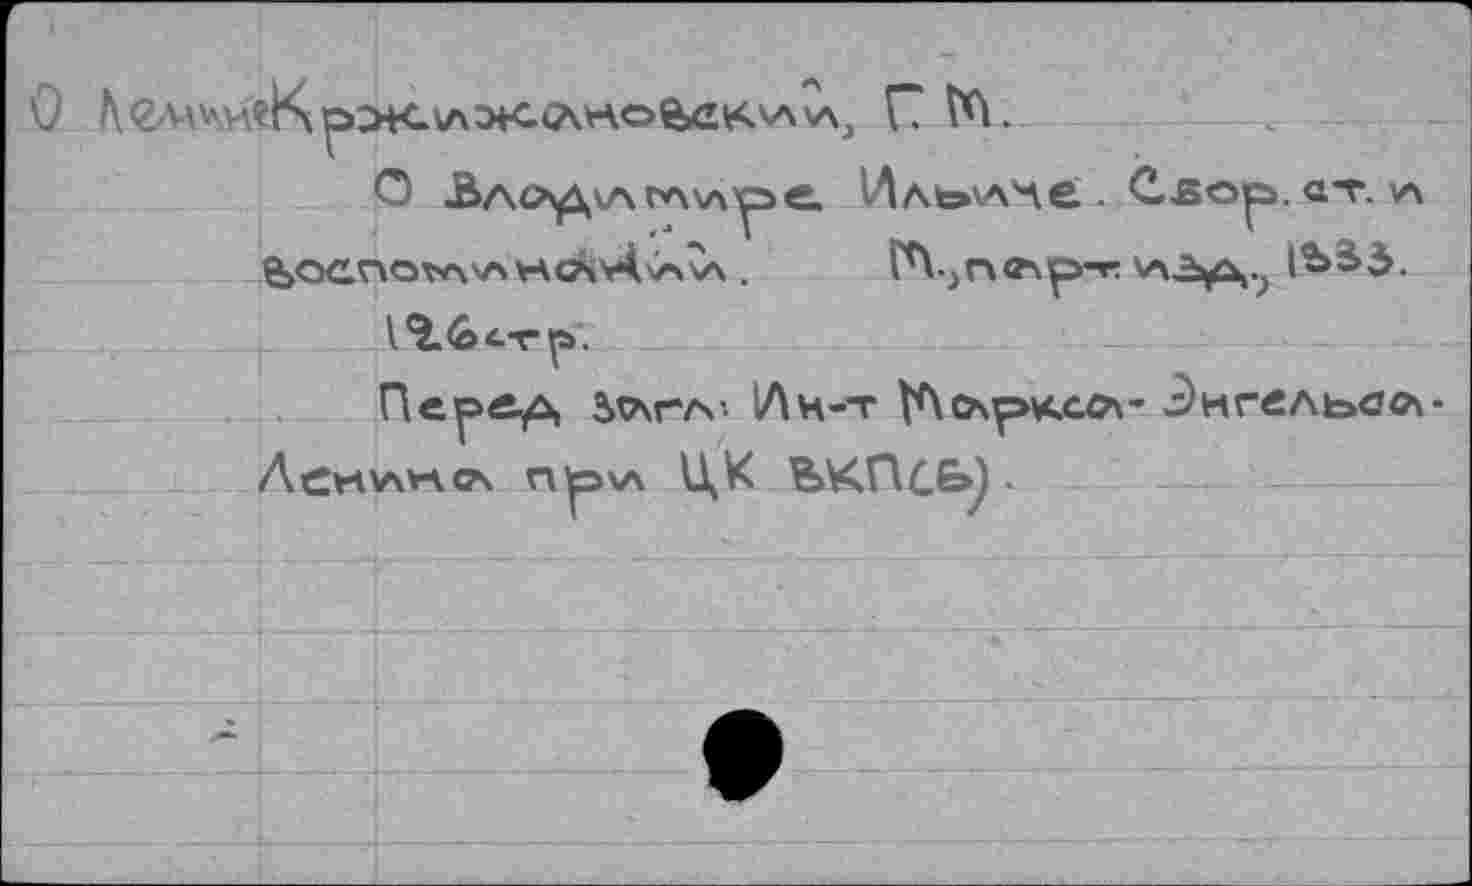 О Ленине Кржижановский, Г. М.
О Владимире Ильиче. Сбор. ст. и
воспоминаний. М., парт. изд., 1933.
126 стр.
Перед загл: Ин-т Маркса-Энгельса-
Ленина при ЦК ВКП(б).